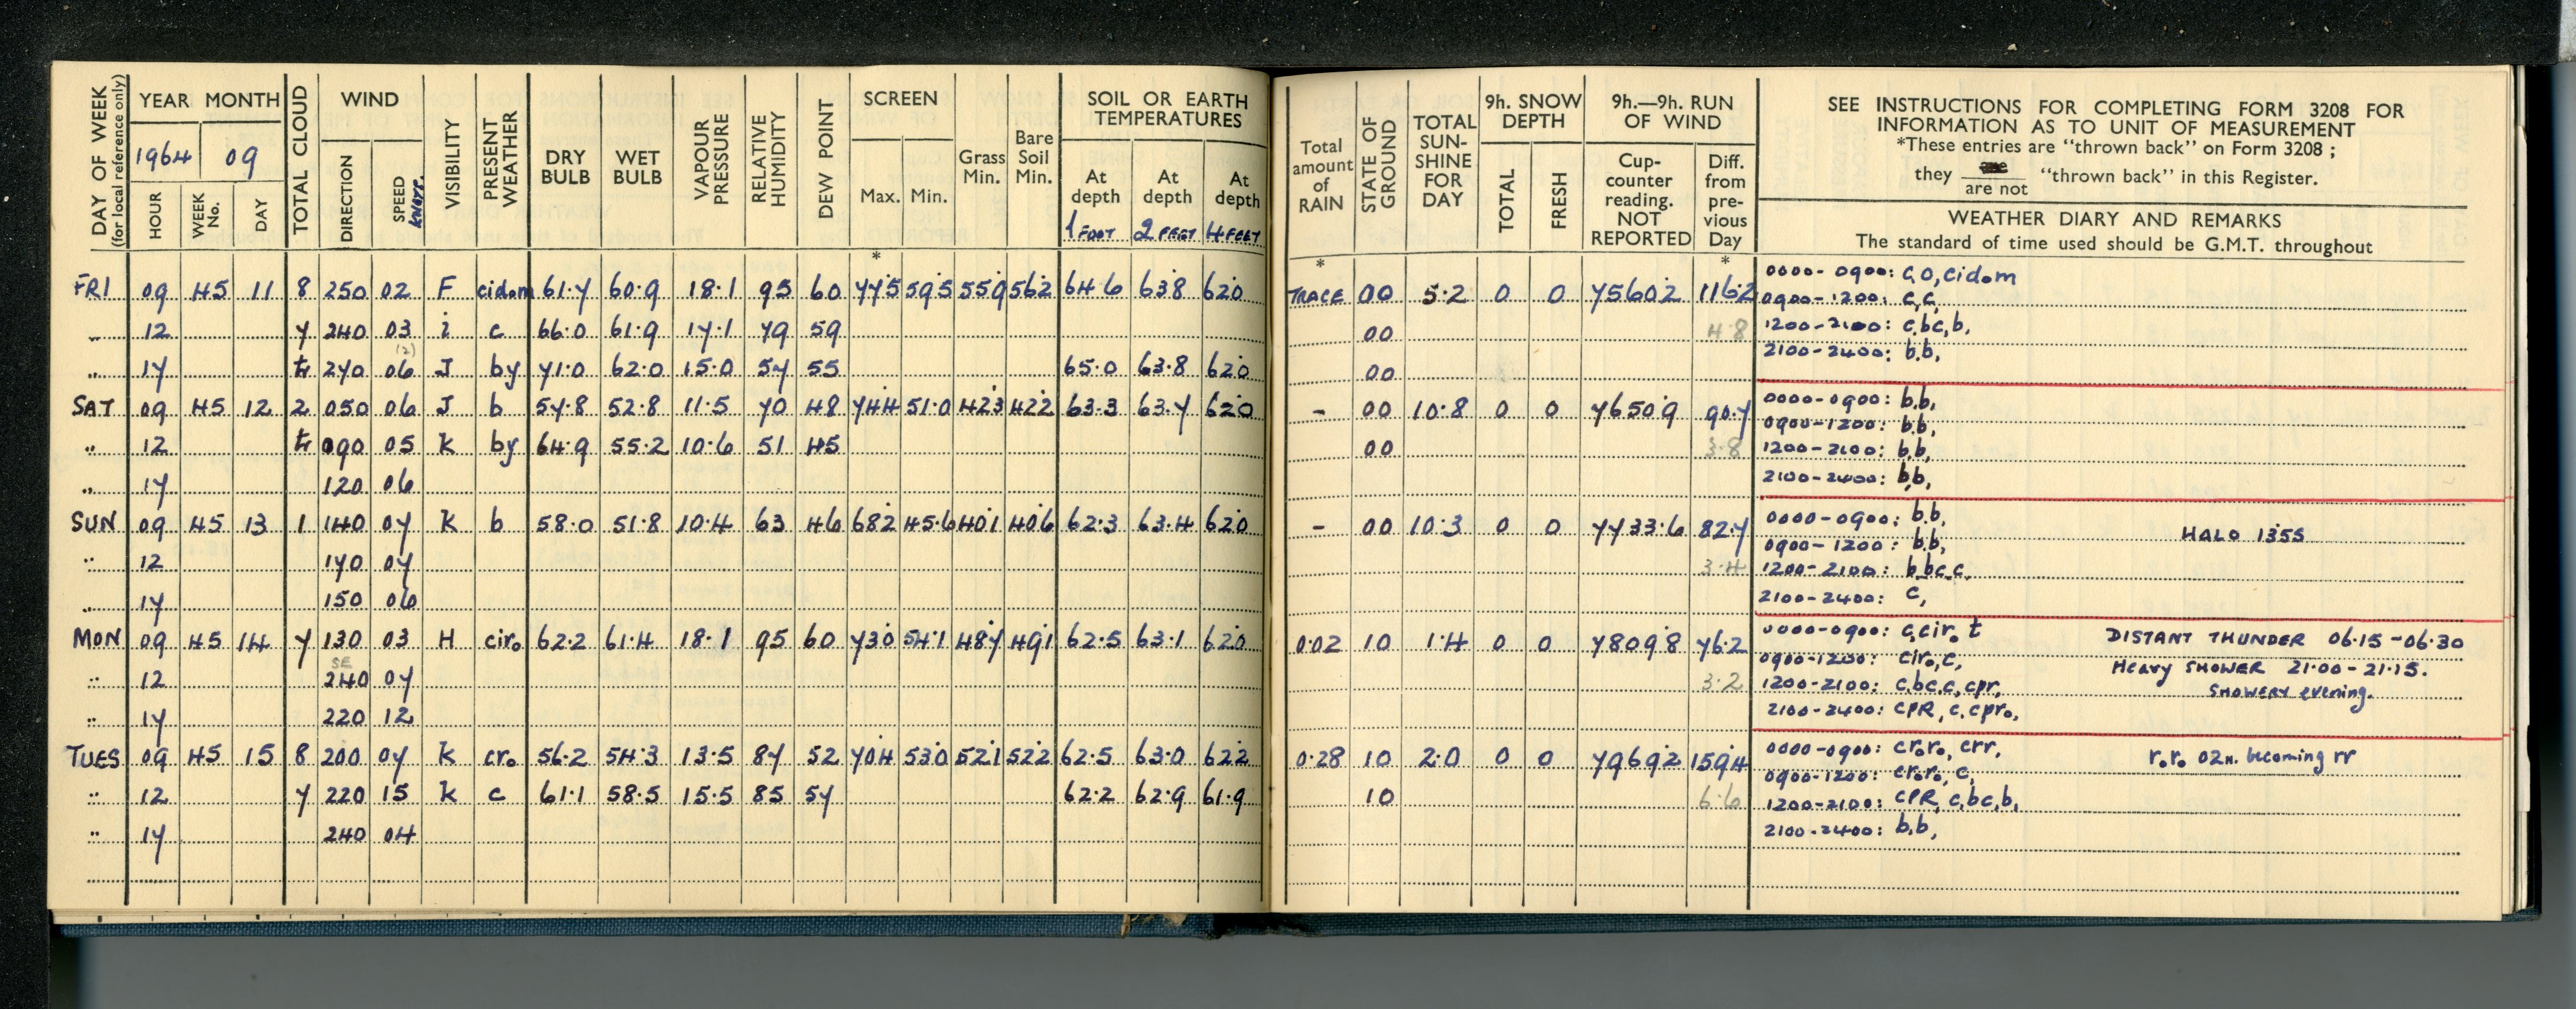 DAY OF WEEK
(for local reference only)
YEAR MONTH
1964 09
HOUR WEEK No. DAY
TOTAL CLOUD
WIND
DIRECTION SPEED KNOTS.
VISIBILITY
PRESENT WEATHER
DRY BULB
WET BULB
VAPOUR PRESSURE
RELATIVE HUMIDITY
DEW POINT
SCREEN
Max. Min.
Grass Min.
Bare Soil Min.
SOIL OR EARTH TEMPERATURES
At depth 1 FOOT
At depth 2 FEET
At depth 4 FEET
*
FRI 09 45 11 8 250 02 F cidom 61.7 60.9 18.1 95 60 77.5 59.5 55.9 56.2 64.6 63.8 62.0
„ 12 7 240 03 i c 66.0 61.9 17.1 79 59
(2)
„ 17 tr 270 06 J by 71.0 62.0 15.0 57 55 65.0 63.8 62.0
SAT 09 45 12 2 050 06 J b 57.8 52.8 11.5 70 48 74.4 51.0 42.3 42.2 63.3 63.7 62.0
„ 12 tr 090 05 K by 64.9 55.2 10.6 51 45
„ 17 120 06
SUN 09 45 13 1 140 07 K b 58.0 51.8 10.4 63 46 68.2 45.6 40.1 40.6 62.3 63.4 62.0
„ 12 170 07
„ 17 150 06
MON 09 45 14 7 130 03 H ciro 62.2 61.4 18.1 95 60 73.0 54.1 48.7 49.1 62.5 63.1 62.0
SE
„ 12 240 07
„ 17 220 12
TUES 09 45 15 8 200 07 K cro 56.2 54.3 13.5 87 52 70.4 53.0 52.1 52.2 62.5 63.0 62.2
„ 12 7 220 15 K c 61.1 58.5 15.5 85 57 62.2 62.9 61.9
„ 17 240 04
Total amount of RAIN
STATE OF GROUND
TOTAL SUN-SHINE FOR DAY
9h. SNOW DEPTH
TOTAL FRESH
9h.—9h. RUN OF WIND
Cup-counter reading. NOT REPORTED
Diff. from pre-vious Day
SEE INSTRUCTIONS FOR COMPLETING FORM 3208 FOR
INFORMATION AS TO UNIT OF MEASUREMENT
*These entries are "thrown back" on Form 3208 ;
they are not "thrown back" in this Register.
WEATHER DIARY AND REMARKS
The standard of time used should be G.M.T. throughout
* *
TRACE 00 5.2 0 0 7560.2 116.2 0000-0900: c,o,cidom
0900-1200: c,c,
00 4.8 1200-2100: c,bc,b,
2100-2400: b,b,
00
- 00 10.8 0 0 7650.9 90.7 0000-0900: b,b,
0900-1200: b,b,
00 3.8 1200-2100: b,b,
2100-2400: b,b,
- 00 10.3 0 0 7733.6 82.7 0000-0900: b,b, HALO 1355
0900-1200: b,b,
3.4 1200-2100: b,bc,c,
2100-2400: c,
0.02 10 1.4 0 0 7809.8 76.2 0000-0900: c,ciro t DISTANT THUNDER 06.15-06.30
0900-1200: ciro,c, Heavy SHOWER 21.00-21.15.
3.2 1200-2100: c,bc,c,cpr, SHOWERY evening.
2100-2400: cPR, c, cpro,
0.28 10 2.0 0 0 7969.2 159.4 0000-0900: croro, crr, roro 02H. becoming rr
0900-1200: croro, c,
10 6.6 1200-2100: cPR, c,bc,b,
2100-2400: b,b,